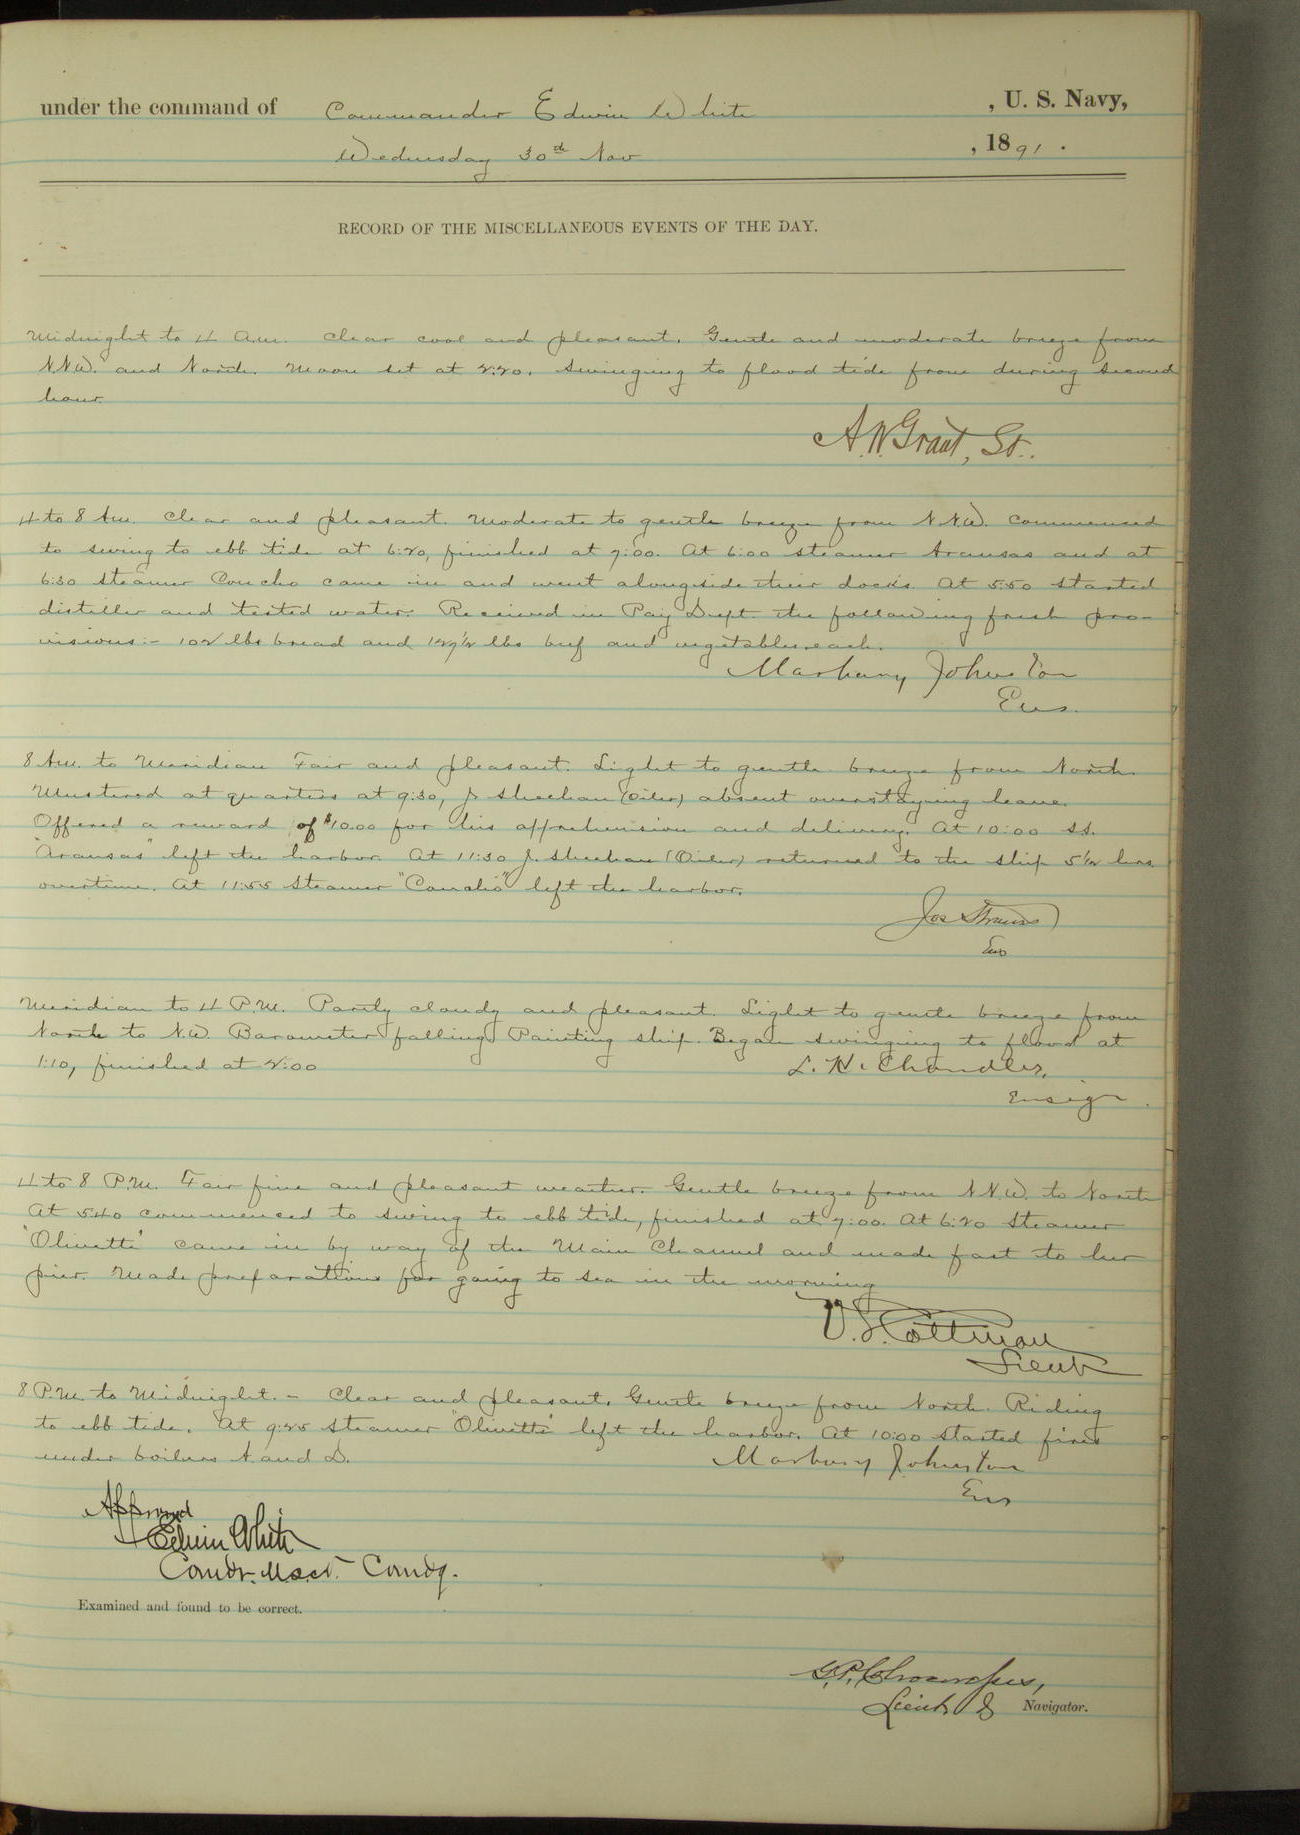 under the command of Commander Edwin White , U. S. Navy,
Wednesday 30th Nov , 1891 .
RECORD OF THE MISCELLANEOUS EVENTS OF THE DAY.
Midnight to 4 A.m. Clear cool and pleasant. Gentle and moderate breeze from
N.N.W. and North. Moon set at 2:20. Swinging to flood tide from during second
hour.
A.W. Grant, Lt.
4 to 8 Am. Clear and pleasant. Moderate to gentle breeze from N.N.W. Commenced
to swing to ebb tide at 6:20, finished at 7:00. At 6:00 steamer Aransas and at
6:30 steamer Concho came in and went alongside their docks. At 5:50 started
distiller and tested water. Received in Pay Dept. the following fresh pro-
visions:- 102 lbs bread and 127½ lbs beef and vegetables each.
Marbury Johnston
Ens.
8 Am. to Meridian Fair and pleasant. Light to gentle breeze from North.
Mustered at quarters at 9:30, J. Sheehan (Oiler) absent overstaying leave.
Offered a reward of $10.00 for his apprehension and delivery. At 10:00 S.S.
"Aransas" left the harbor. At 11:30 J. Sheehan (Oiler) returned to the ship 5½ hrs
overtime. At 11:55 Steamer "Concho" left the harbor.
Jos Strauss
Ens
Meridian to 4 P.M. Partly cloudy and pleasant. Light to gentle breeze from
North to N.W. Barometer falling. Painting ship. Began swinging to flood at
1:10, finished at 2:00
L. H. Chandler,
Ensign.
4 to 8 P.M. Fair fine and pleasant weather. Gentle breeze from N.N.W. to North
At 5:40 commenced to swing to ebb tide, finished at 7:00. At 6:20 Steamer
"Olivette" came in by way of the Main Channel and made fast to her
pier. Made preparations for going to sea in the morning
V. S. Cottman
Lieut
8 P.M. to Midnight. - Clear and pleasant. Gentle breeze from North. Riding
to ebb tide. At 9:25 steamer "Olivette" left the harbor. At 10:00 started fires
under boilers A and D.
Marbury Johnston
Ens
Approved
Edwin White
Comdr. U.S.N. Comdg.
Examined and found to be correct.
Lieut & Navigator.